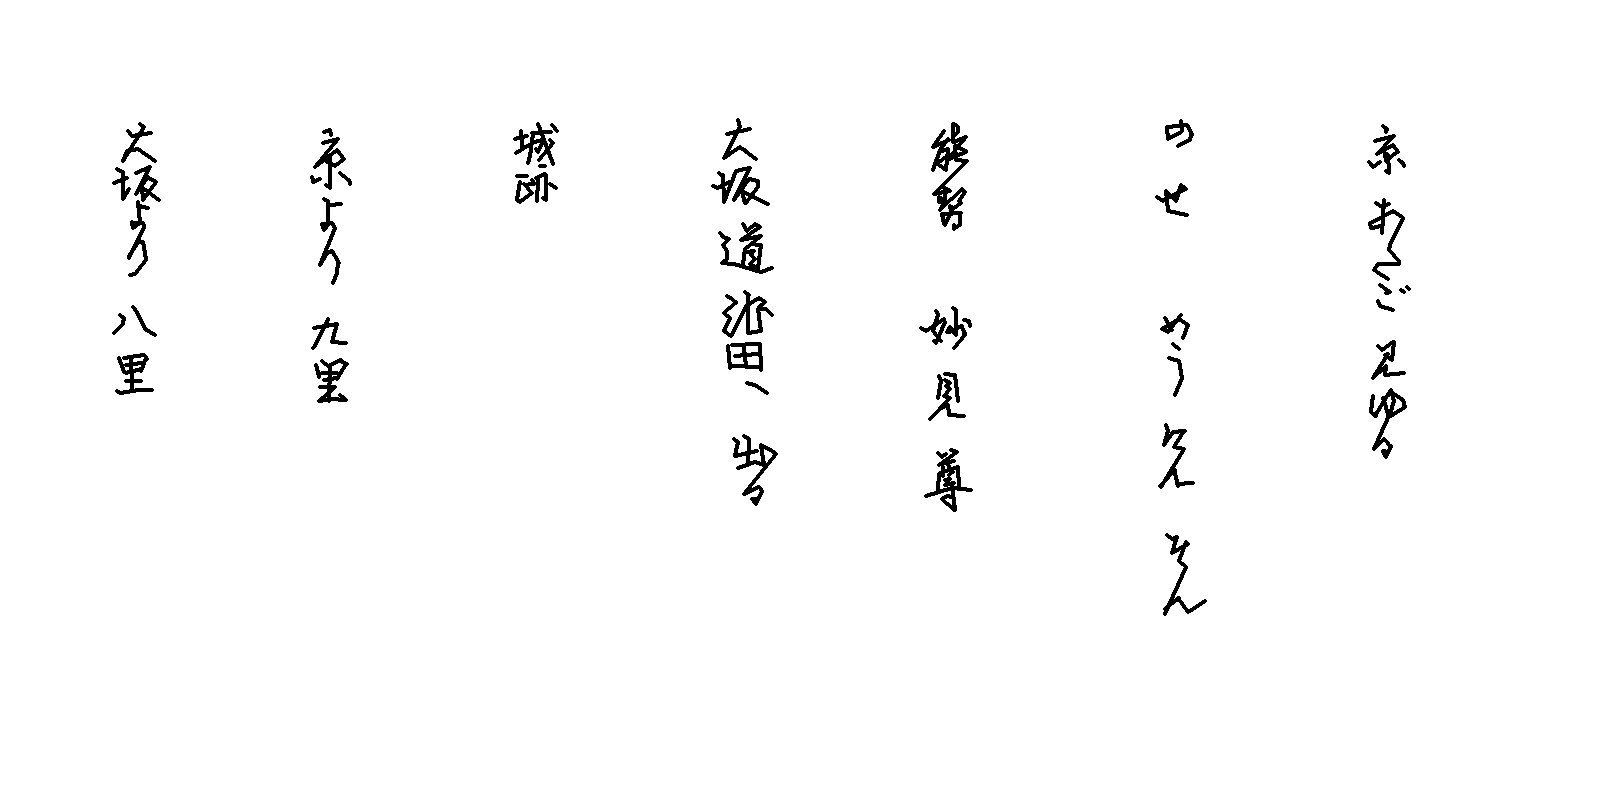 京あたご見ゆる
のせ めうけん そん
能勢 妙見尊
大坂道池田へ出る
城跡
京より九里
大坂より八里